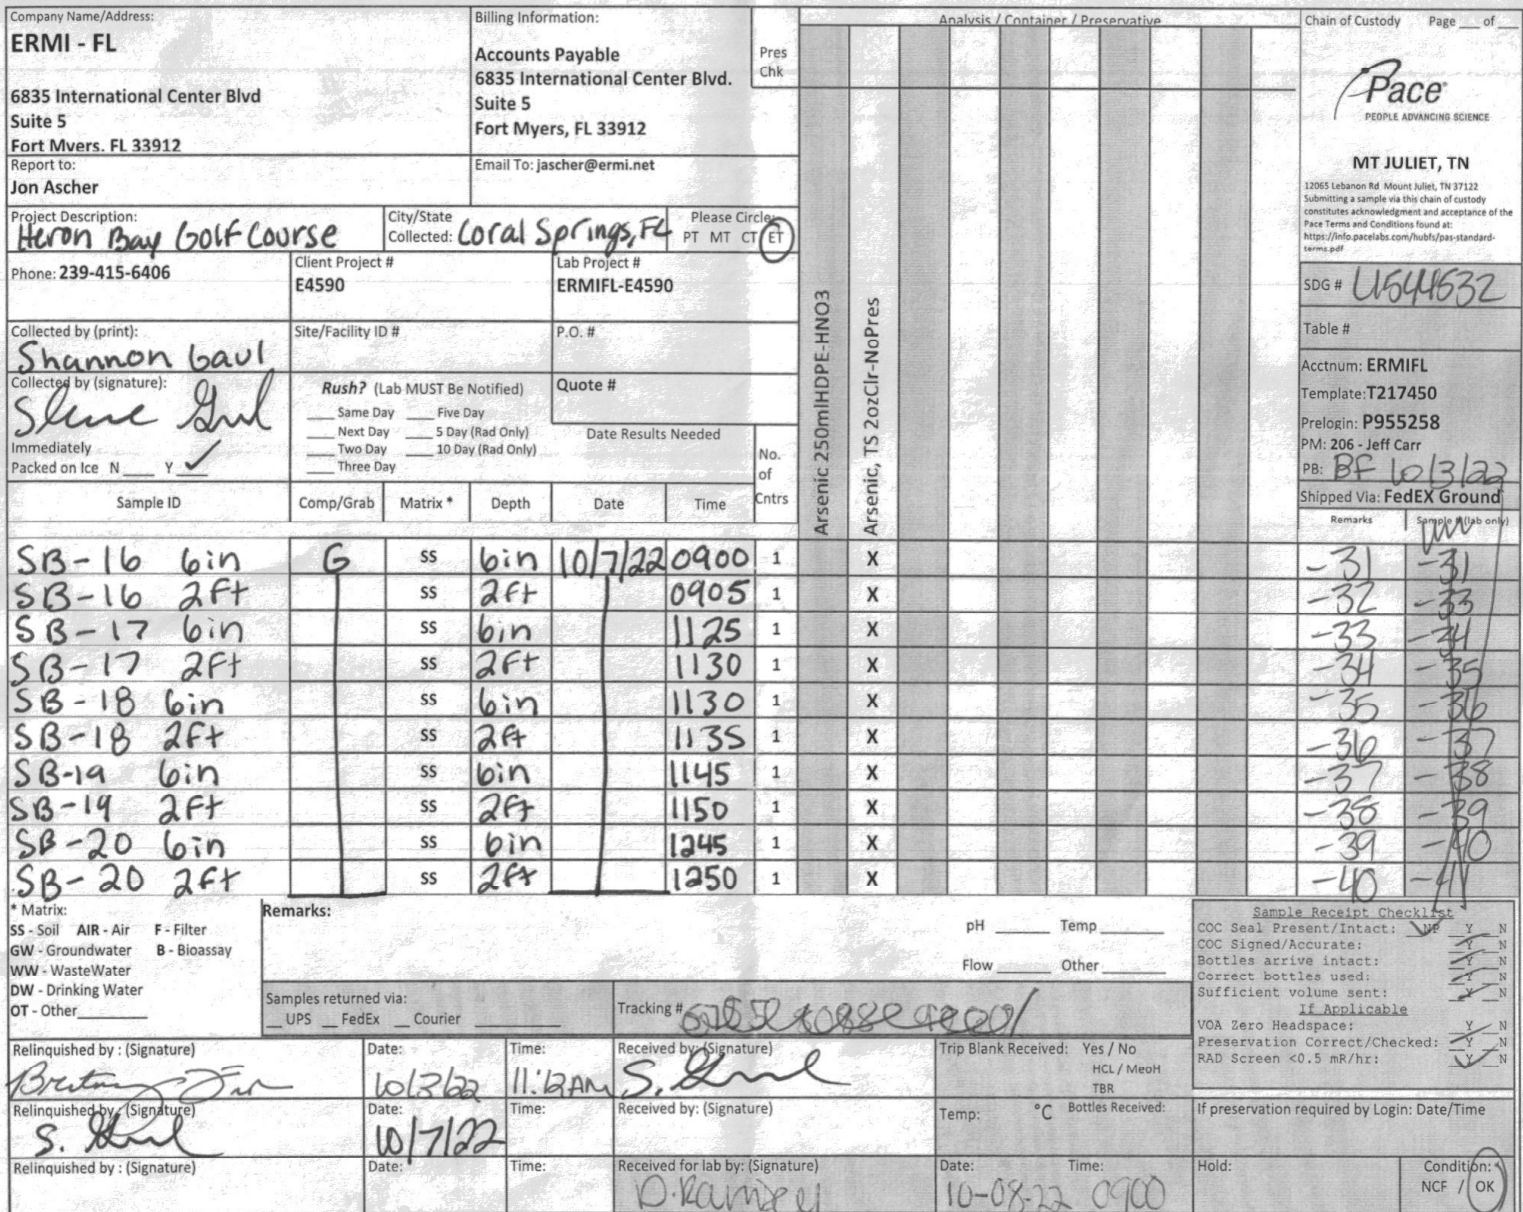 Company Name/Address:
ERMI - FL
6835 International Center Blvd
Suite 5
Fort Myers, FL 33912
Billing Information:
Accounts Payable
6835 International Center Blvd.
Suite 5
Fort Myers, FL 33912
Pres
Chk
Analysis / Container / Preservative
Chain of Custody Page ___ of ___
Pace
PEOPLE ADVANCING SCIENCE
MT JULIET, TN
12065 Lebanon Rd Mount Juliet, TN 37122
Submitting a sample via this chain of custody
constitutes acknowledgment and acceptance of the
Pace Terms and Conditions found at:
https://info.pacelabs.com/hubfs/pas-standard-
terms.pdf
Report to:
Jon Ascher
Email To: jascher@ermi.net
Project Description:
Heron Bay Golf Course
City/State
Collected: Coral Springs, FL
Please Circle:
PT MT CT ET
Phone: 239-415-6406
Client Project #
E4590
Lab Project #
ERMIFL-E4590
Collected by (print):
Shannon Gaul
Site/Facility ID #
P.O. #
Collected by (signature):
Rush? (Lab MUST Be Notified)
___ Same Day ___ Five Day
___ Next Day ___ 5 Day (Rad Only)
___ Two Day ___ 10 Day (Rad Only)
___ Three Day
Quote #
Date Results Needed
Immediately
Packed on Ice N ___ Y ✓
No.
of
Cntrs
Arsenic 250mlHDPE-HNO3
Arsenic, TS 2ozClr-NoPres
SDG # L1544532
Table #
Acctnum: ERMIFL
Template: T217450
Prelogin: P955258
PM: 206 - Jeff Carr
PB: BF 10/3/22
Shipped Via: FedEX Ground
Sample ID Comp/Grab Matrix * Depth Date Time Remarks Sample # (lab only)
SB-16 6in G SS 6in 10/7/22 0900 1 X -31 -31
SB-16 2ft SS 2ft 0905 1 X -32 -33
SB-17 6in SS 6in 1125 1 X -33 -34
SB-17 2ft SS 2ft 1130 1 X -34 -35
SB-18 6in SS 6in 1130 1 X -35 -36
SB-18 2ft SS 2ft 1135 1 X -36 -37
SB-19 6in SS 6in 1145 1 X -37 -38
SB-19 2ft SS 2ft 1150 1 X -38 -39
SB-20 6in SS 6in 1245 1 X -39 -40
SB-20 2ft SS 2ft 1250 1 X -40 -41
* Matrix:
SS - Soil AIR - Air F - Filter
GW - Groundwater B - Bioassay
WW - WasteWater
DW - Drinking Water
OT - Other
Remarks:
pH ___ Temp ___
Flow ___ Other ___
Samples returned via:
__ UPS __ FedEx __ Courier
Tracking #
Sample Receipt Checklist
COC Seal Present/Intact: NP Y N
COC Signed/Accurate: Y N
Bottles arrive intact: Y N
Correct bottles used: Y N
Sufficient volume sent: Y N
If Applicable
VOA Zero Headspace: Y N
Preservation Correct/Checked: Y N
RAD Screen <0.5 mR/hr: Y N
Relinquished by : (Signature)
Date: 10/3/22
Time: 11:12AM
Received by: (Signature)
Trip Blank Received: Yes / No
HCL / MeoH
TBR
Relinquished by : (Signature)
Date: 10/7/22
Time:
Received by: (Signature)
Temp: °C Bottles Received:
If preservation required by Login: Date/Time
Relinquished by : (Signature)
Date:
Time:
Received for lab by: (Signature)
D. Ramsey
Date: 10-08-22
Time: 0900
Hold:
Condition:
NCF / OK